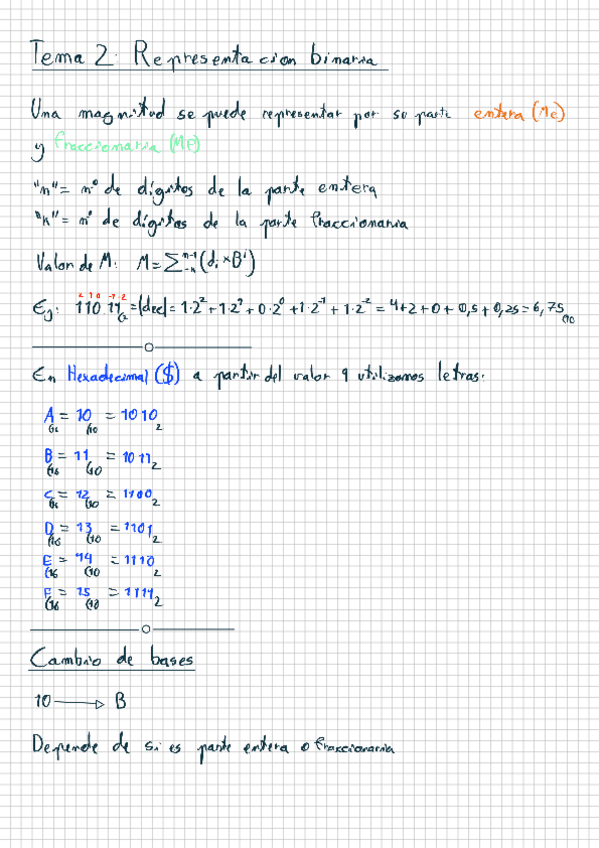 Tema 2: Representacion binaria
Una magnitud se puede representar por su parte entera (Me)
y fraccionaria (MF)
"n" = nº de dígitos de la parte entera
"k" = nº de dígitos de la parte fraccionaria
Valor de M: M = ∑ⁿ⁻¹₋ₖ (dᵢ × Bⁱ)
2 1 0 -1 -2
Ej: 110.11(2 = |dec| = 1·2² + 1·2¹ + 0·2⁰ + 1·2⁻¹ + 1·2⁻² = 4+2+0+0,5+0,25 = 6,75(10
En Hexadecimal ($) a partir del valor 9 utilizamos letras.
A(16 = 10(10 = 1010₂
B(16 = 11(10 = 1011₂
C(16 = 12(10 = 1100₂
D(16 = 13(10 = 1101₂
E(16 = 14(10 = 1110₂
F(16 = 15(10 = 1111₂
Cambio de bases
10 → B
Depende de si es parte entera o fraccionaria